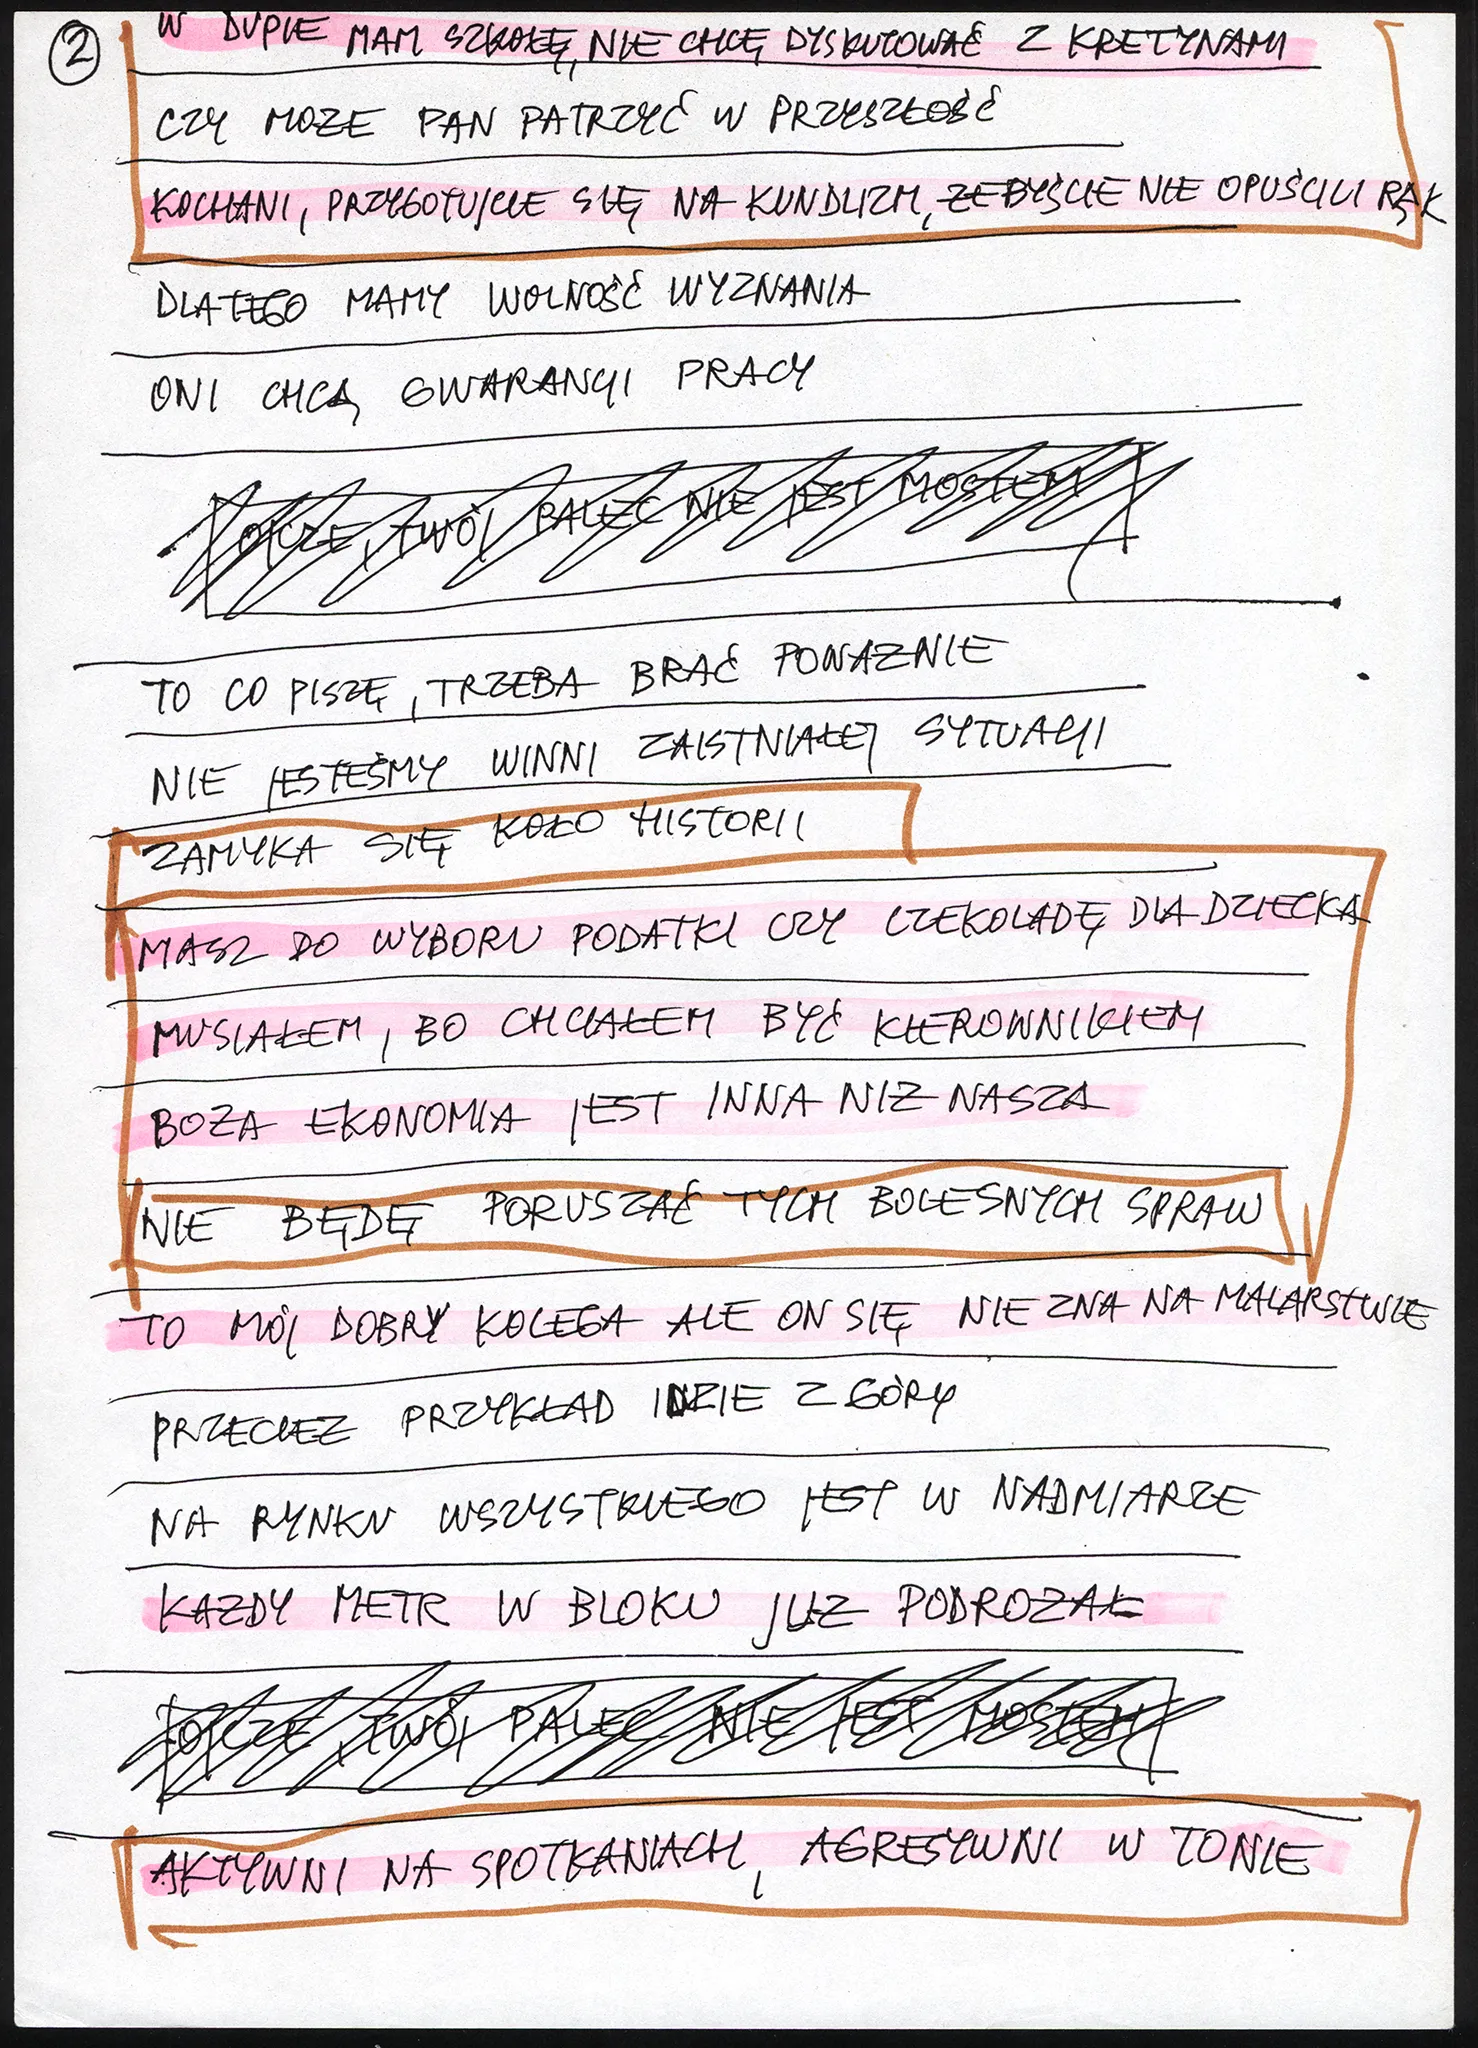 2
W DUPIE MAM SZKOŁĘ, NIE CHCĘ DYSKUTOWAĆ Z KRETYNAMI
CZY MOŻE PAN PATRZYĆ W PRZYSZŁOŚĆ
KOCHANI, PRZYGOTUJCIE SIĘ NA KUNDLIZM, ŻEBYŚCIE NIE OPUŚCILI RĄK
DLATEGO MAMY WOLNOŚĆ WYZNANIA
ONI CHCĄ GWARANCJI PRACY
OJCZE, TWÓJ PALEC NIE JEST MOSTEM
TO CO PISZĘ, TRZEBA BRAĆ POWAŻNIE
NIE JESTEŚMY WINNI ZAISTNIAŁEJ SYTUACJI
ZAMYKA SIĘ KOŁO HISTORII
MASZ DO WYBORU PODATKI CZY CZEKOLADĘ DLA DZIECKA
MUSIAŁEM, BO CHCIAŁEM BYĆ KIEROWNIKIEM
BOŻA EKONOMIA JEST INNA NIŻ NASZA
NIE BĘDĘ PORUSZAĆ TYCH BOLESNYCH SPRAW
TO MÓJ DOBRY KOLEGA ALE ON SIĘ NIE ZNA NA MALARSTWIE
PRZECIEŻ PRZYKŁAD IDZIE Z GÓRY
NA RYNKU WSZYSTKIEGO JEST W NADMIARZE
KAŻDY METR W BLOKU JUŻ PODROŻAŁ
OJCZE, TWÓJ PALEC NIE JEST MOSTEM
AKTYWNI NA SPOTKANIACH, AGRESYWNI W TONIE